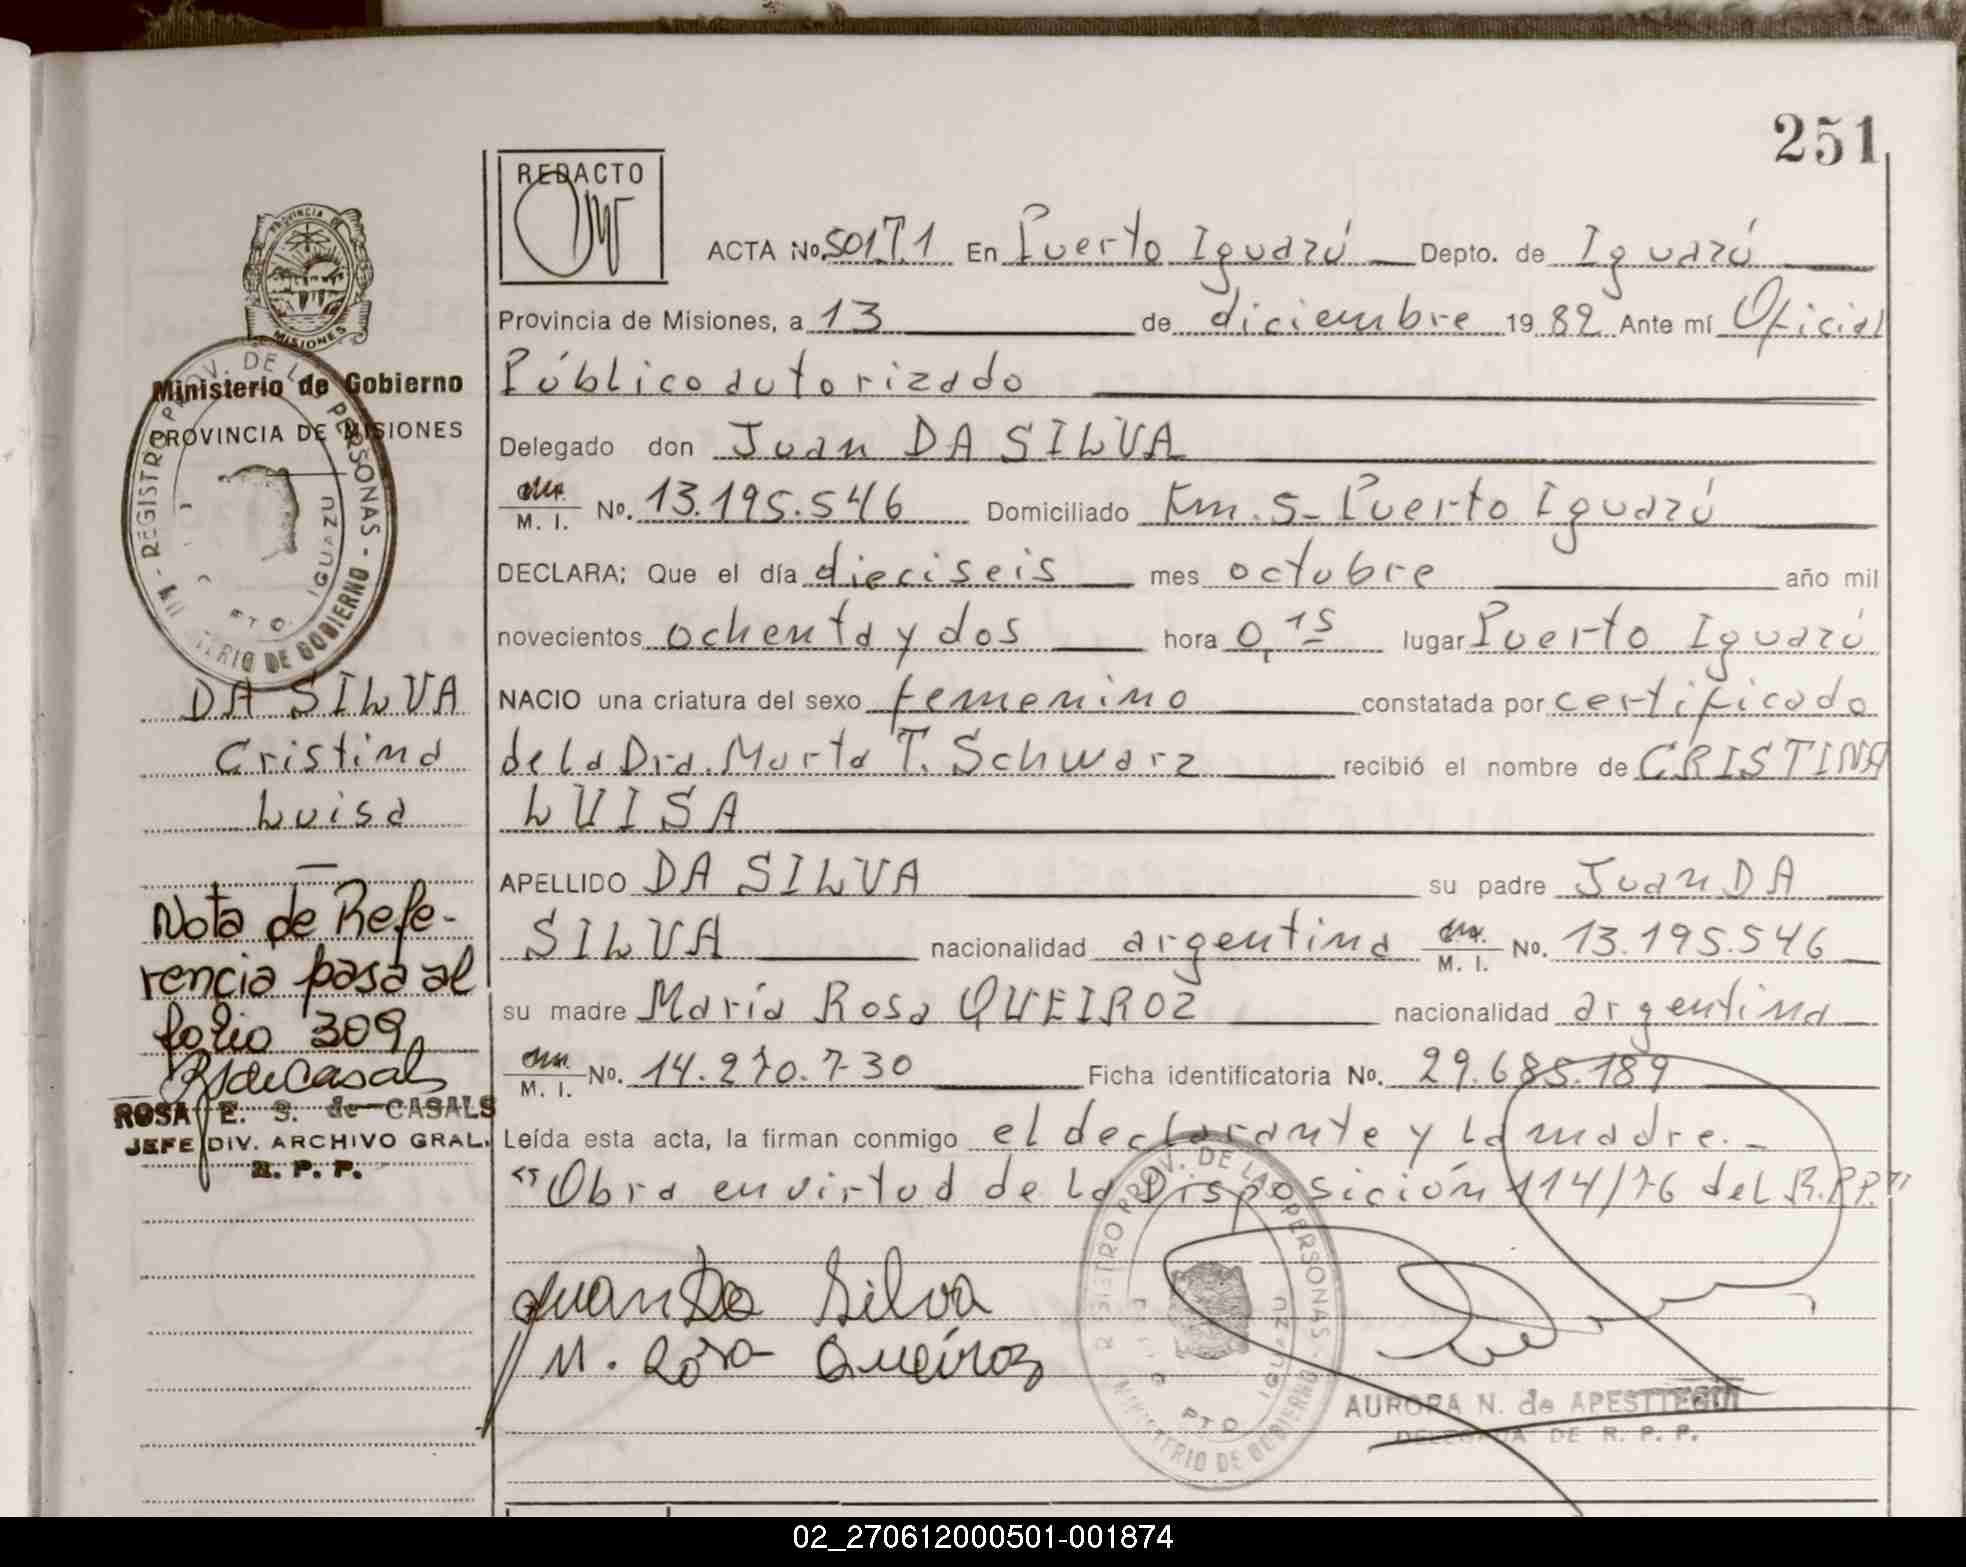 251
REDACTO
ACTA No. 501T.1 En Puerto Iguazú Depto. de Iguazú
Provincia de Misiones, a 13 de diciembre 1982 Ante mí Oficial
Público autorizado
Delegado don Juan DA SILVA
M. I. No. 13.195.546 Domiciliado Km. 5- Puerto Iguazú
DECLARA; Que el día dieciseis mes octubre año mil
novecientos ochenta y dos hora 0,15 lugar Puerto Iguazú
NACIO una criatura del sexo femenino constatada por certificado
de la Dra. Marta T. Schwarz recibió el nombre de CRISTINA
LUISA
APELLIDO DA SILVA su padre Juan DA
SILVA nacionalidad argentina M. I. No. 13.195.546
su madre María Rosa QUEIROZ nacionalidad argentina
M. I. No. 14.270.730 Ficha identificatoria No. 29.685.189
Leída esta acta, la firman conmigo el declarante y la madre.-
"Obra en virtud de la Disposición 114/76 del R.P.P."
Juan Da Silva
M. Rosa Queiroz
REGISTRO PROV. DE LAS PERSONAS - MINISTERIO DE GOBIERNO
PTO. IGUAZU
AURORA N. de APESTTEGUI
DELEGADA DE R. P. P.
PROVINCIA DE MISIONES
Ministerio de Gobierno
PROVINCIA DE MISIONES
REGISTRO PROV. DE LAS PERSONAS - MINISTERIO DE GOBIERNO
PTO. IGUAZU
DA SILVA
Cristina
Luisa
Nota de Refe-
rencia pasa al
folio 309
RSdeCasals
ROSA E. S. de CASALS
JEFE DIV. ARCHIVO GRAL.
R. P. P.
02_270612000501-001874